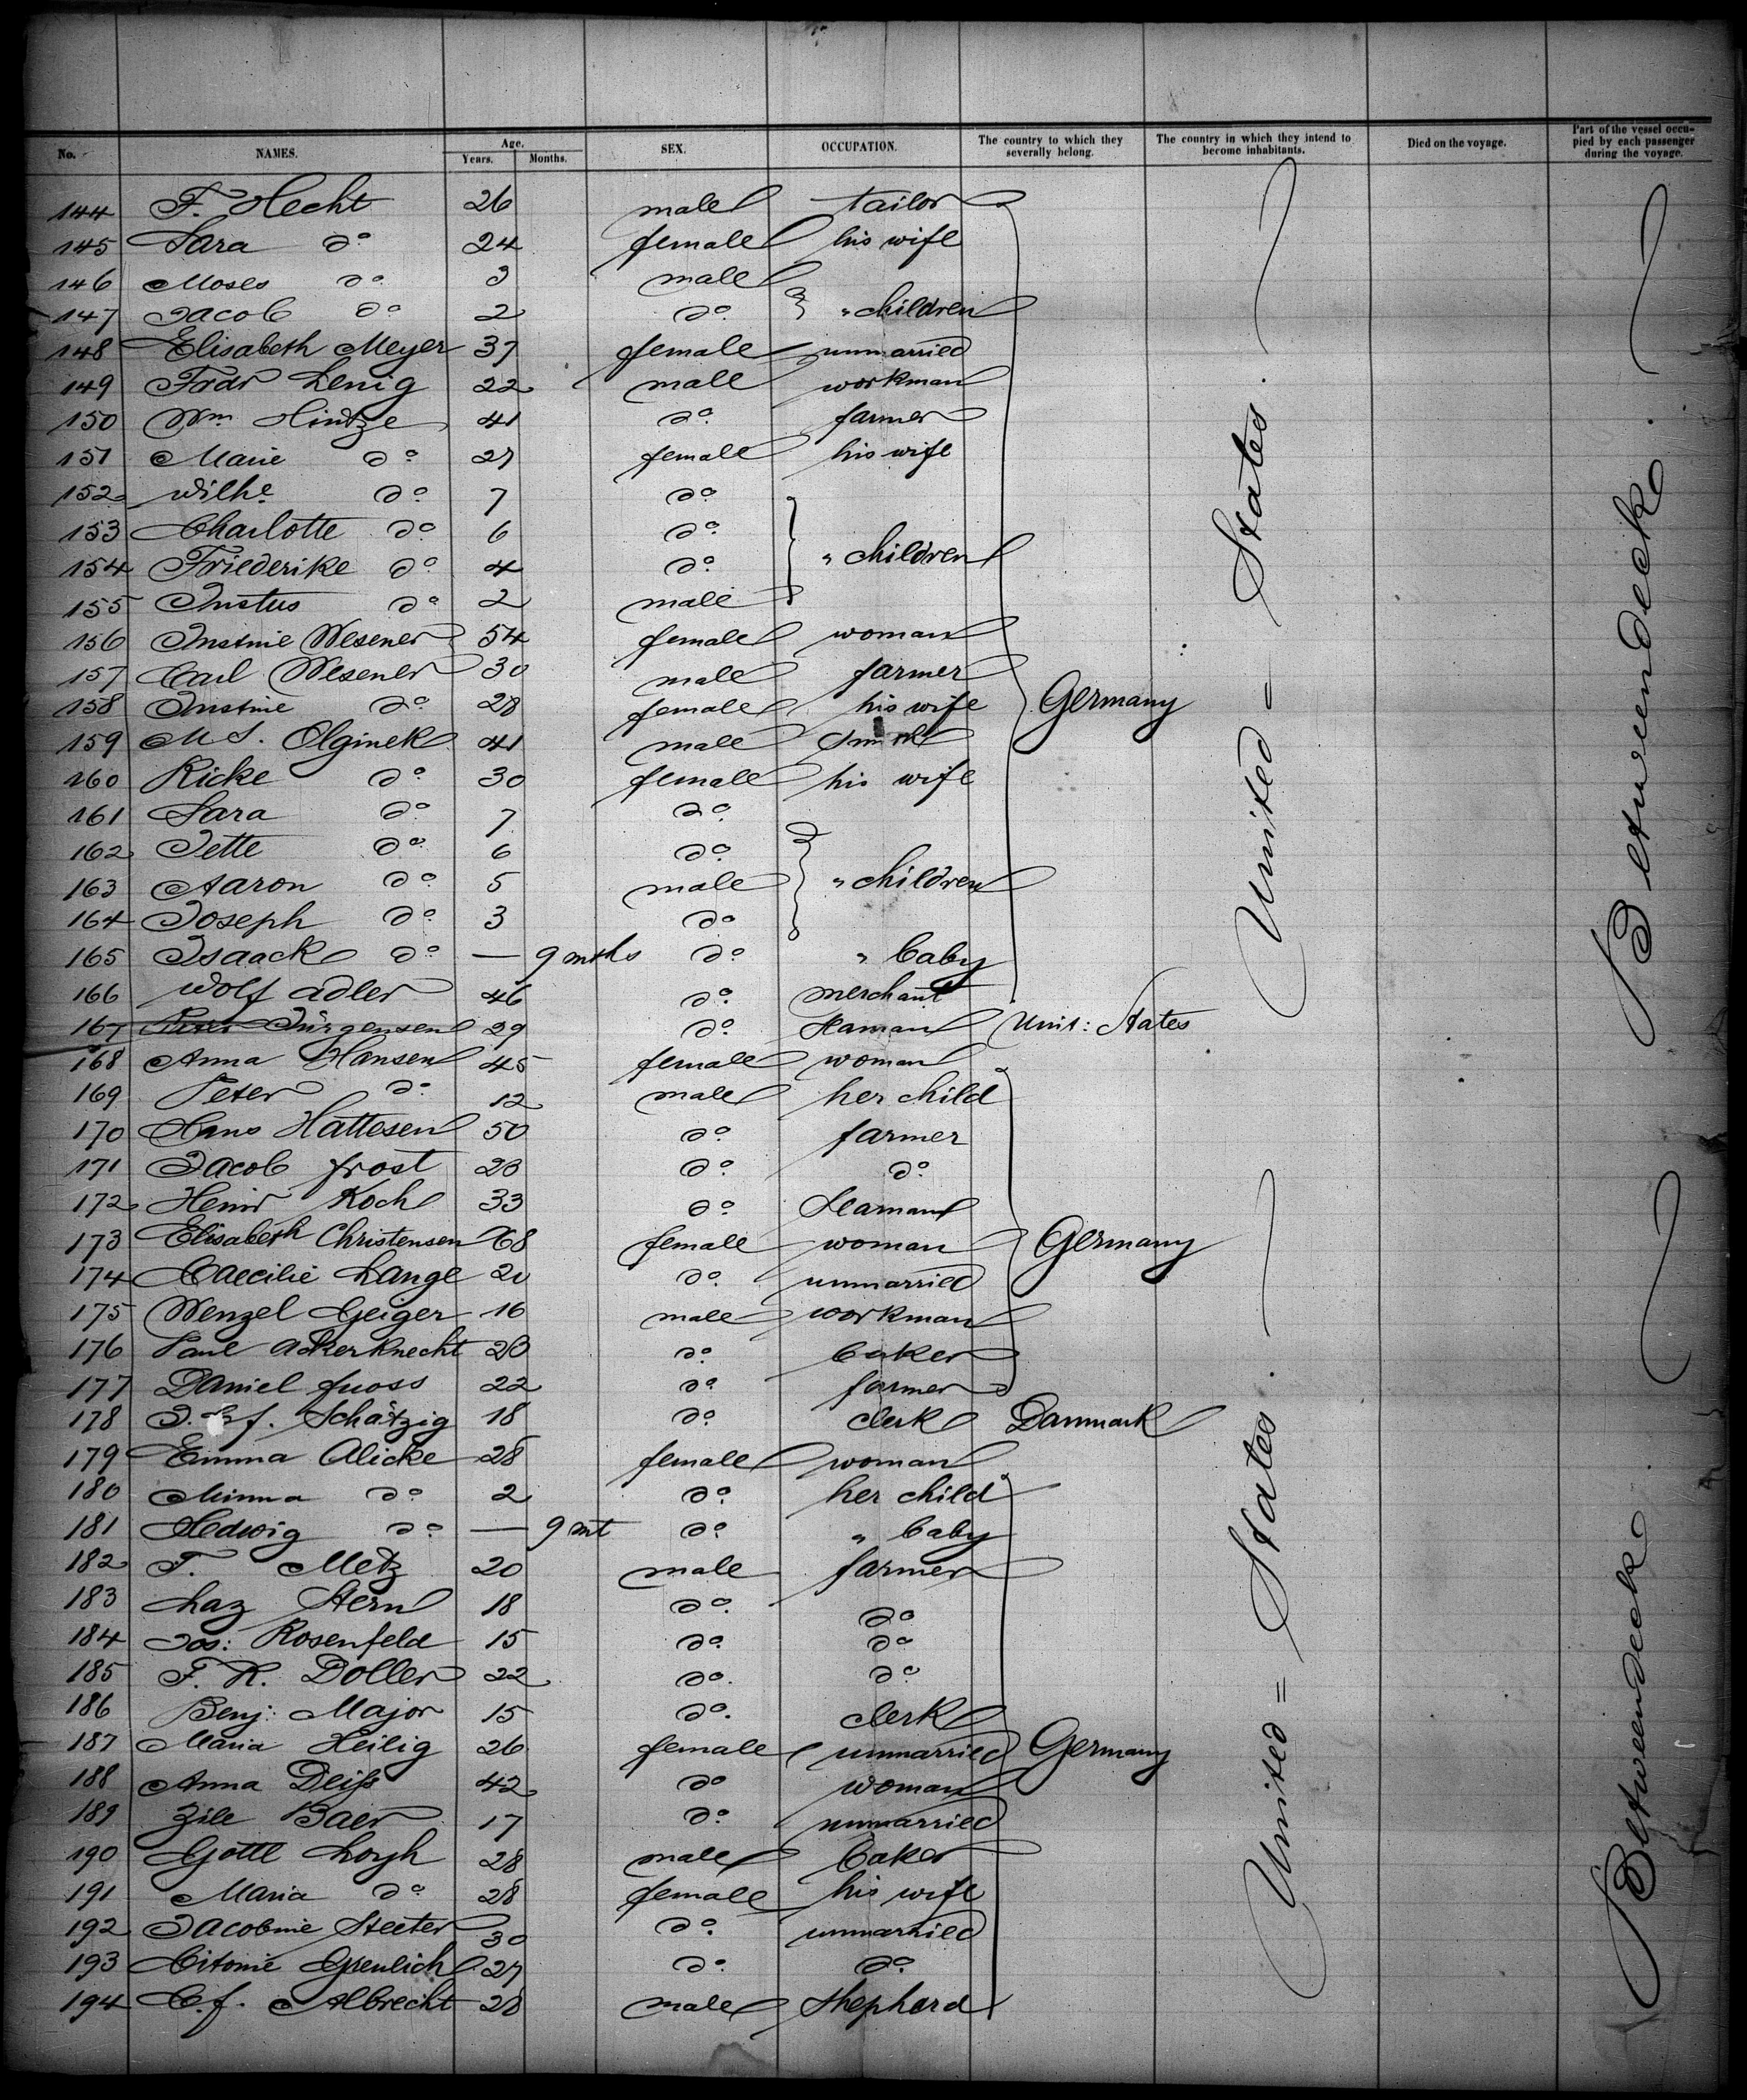 No. NAMES. Age. Years. Months. SEX. OCCUPATION. The country to which they severally belong. The country in which they intend to become inhabitants. Died on the voyage. Part of the vessel occupied by each passenger during the voyage.
144 F. Hecht 26 male tailor
145 Sara do 24 female his wife
146 Moses do 3 male
147 Jacob do 2 do " children
148 Elisabeth Meyer 37 female unmarried
149 Fredr Lenig 22 male workman
150 Wm. Hintze 41 do farmer
151 Marie do 27 female his wife
152 Wilhe do 7 do
153 Charlotte do 6 do
154 Friederike do 4 do " children
155 Justus do 2 male
156 Justine Wesener 54 female woman
157 Carl Wesener 30 male farmer
158 Justine do 28 female his wife Germany
159 M S. Olginek 41 male smith
160 Ricke do 30 female his wife
161 Sara do 7 do
162 Jette do 6 do
163 Aaron do 5 male " children
164 Joseph do 3 do
165 Isaack do — 9 mths do " baby
166 Wolf Adler 46 do merchant
167 Peter Jürgensen 29 do Seaman Unit: States
168 Anna Hansen 45 female woman
169 Peter do 12 male her child
170 Hans Hattesen 50 do farmer
171 Jacob Frost 23 do do
172 Heinr Koch 33 do Seaman
173 Elisabeth Christensen 68 female woman Germany
174 Caecilie Lange 20 do unmarried
175 Wenzel Geiger 16 male workman
176 Paul Ackerknecht 23 do baker
177 Daniel Fuoss 22 do farmer
178 J. f. Schätzig 18 do clerk Danmark
179 Emma Alicke 28 female woman
180 Minna do 2 do her child
181 Hedwig do — 9 mt do " baby
182 F. Metz 20 male farmer
183 Laz Stern 18 do do
184 Jos: Rosenfeld 15 do do
185 F. R. Doller 22 do do
186 Benj: Major 15 do clerk
187 Maria Heilig 26 female unmarried Germany
188 Anna Deiss 42 do woman
189 Zile Baer 17 do unmarried
190 Gottl Lorch 28 male baker
191 Maria do 28 female his wife
192 Jacobine Steeter 30 do unmarried
193 Citonie Greulich 27 do do
194 C. f. Albrecht 28 male Shephard
United = States.
United = States.
Betweendeck.
Betweendeck.